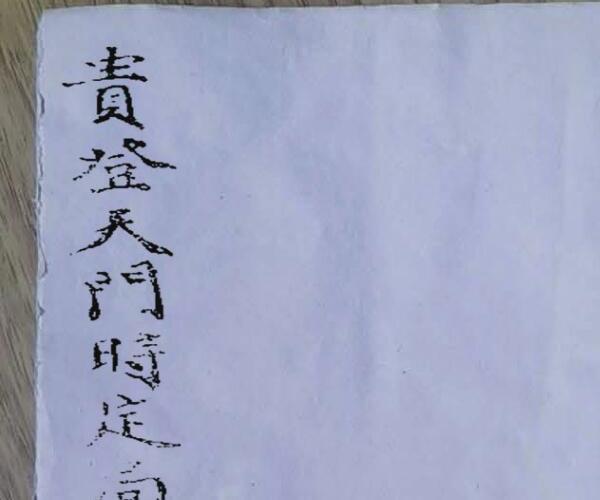 貴登天門時定